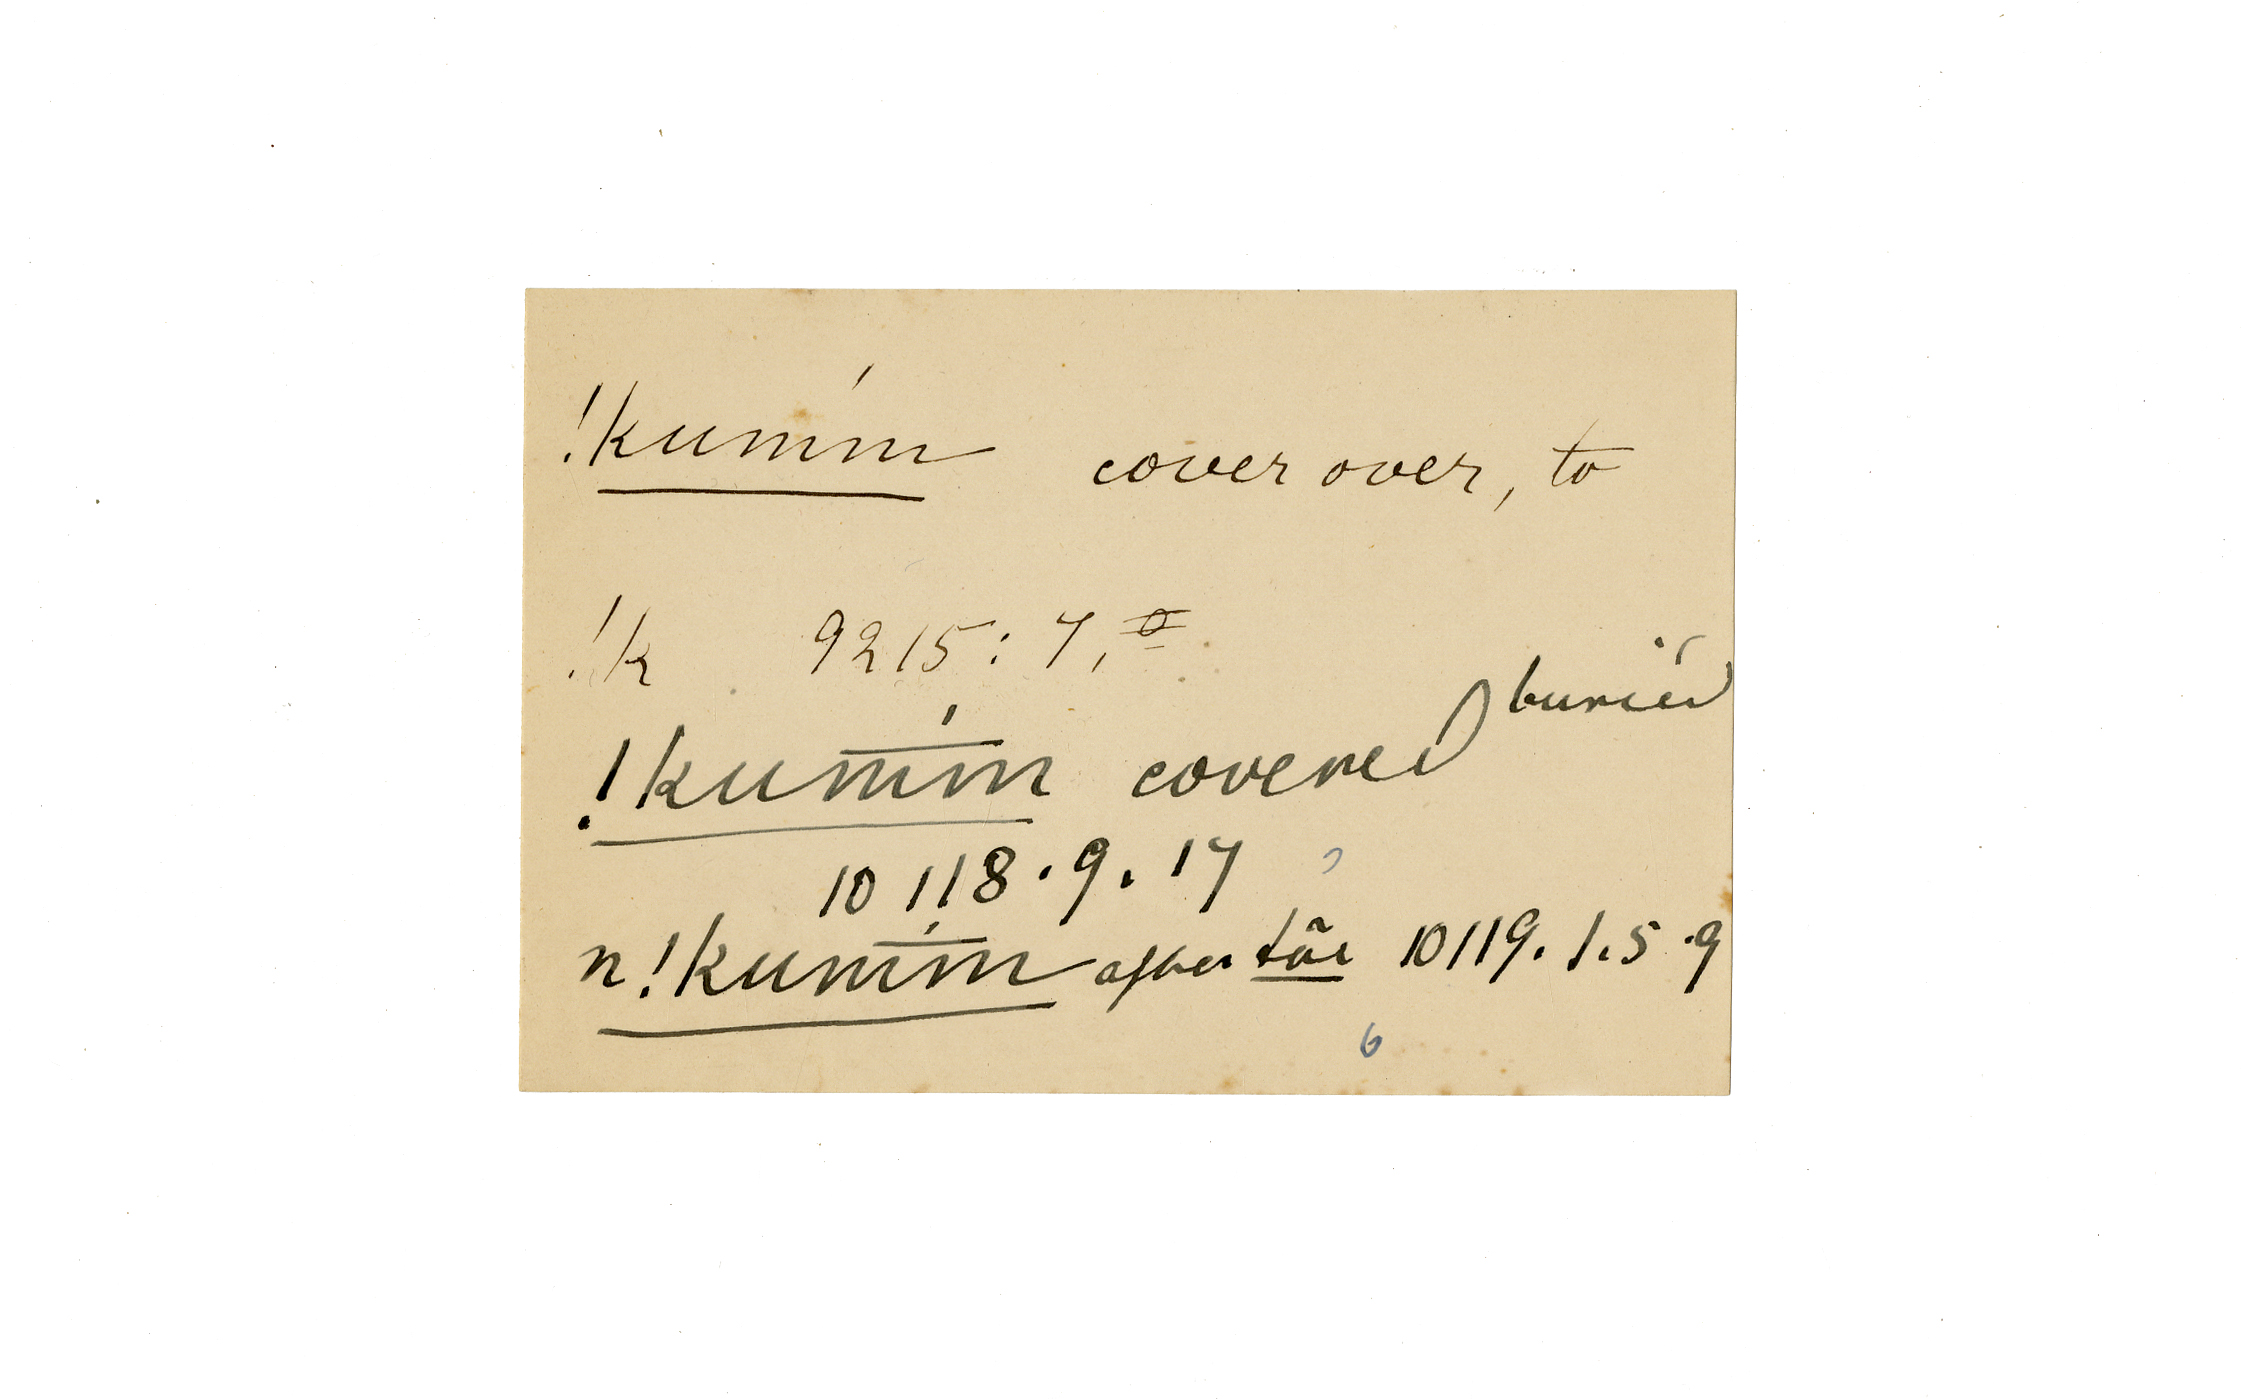 !kum̄́m cover over, to
!k 9215: 7,
!kum̅́m covered buried
10118.9.17
n!kum̅́m after tãi 10119.1.5.9
6